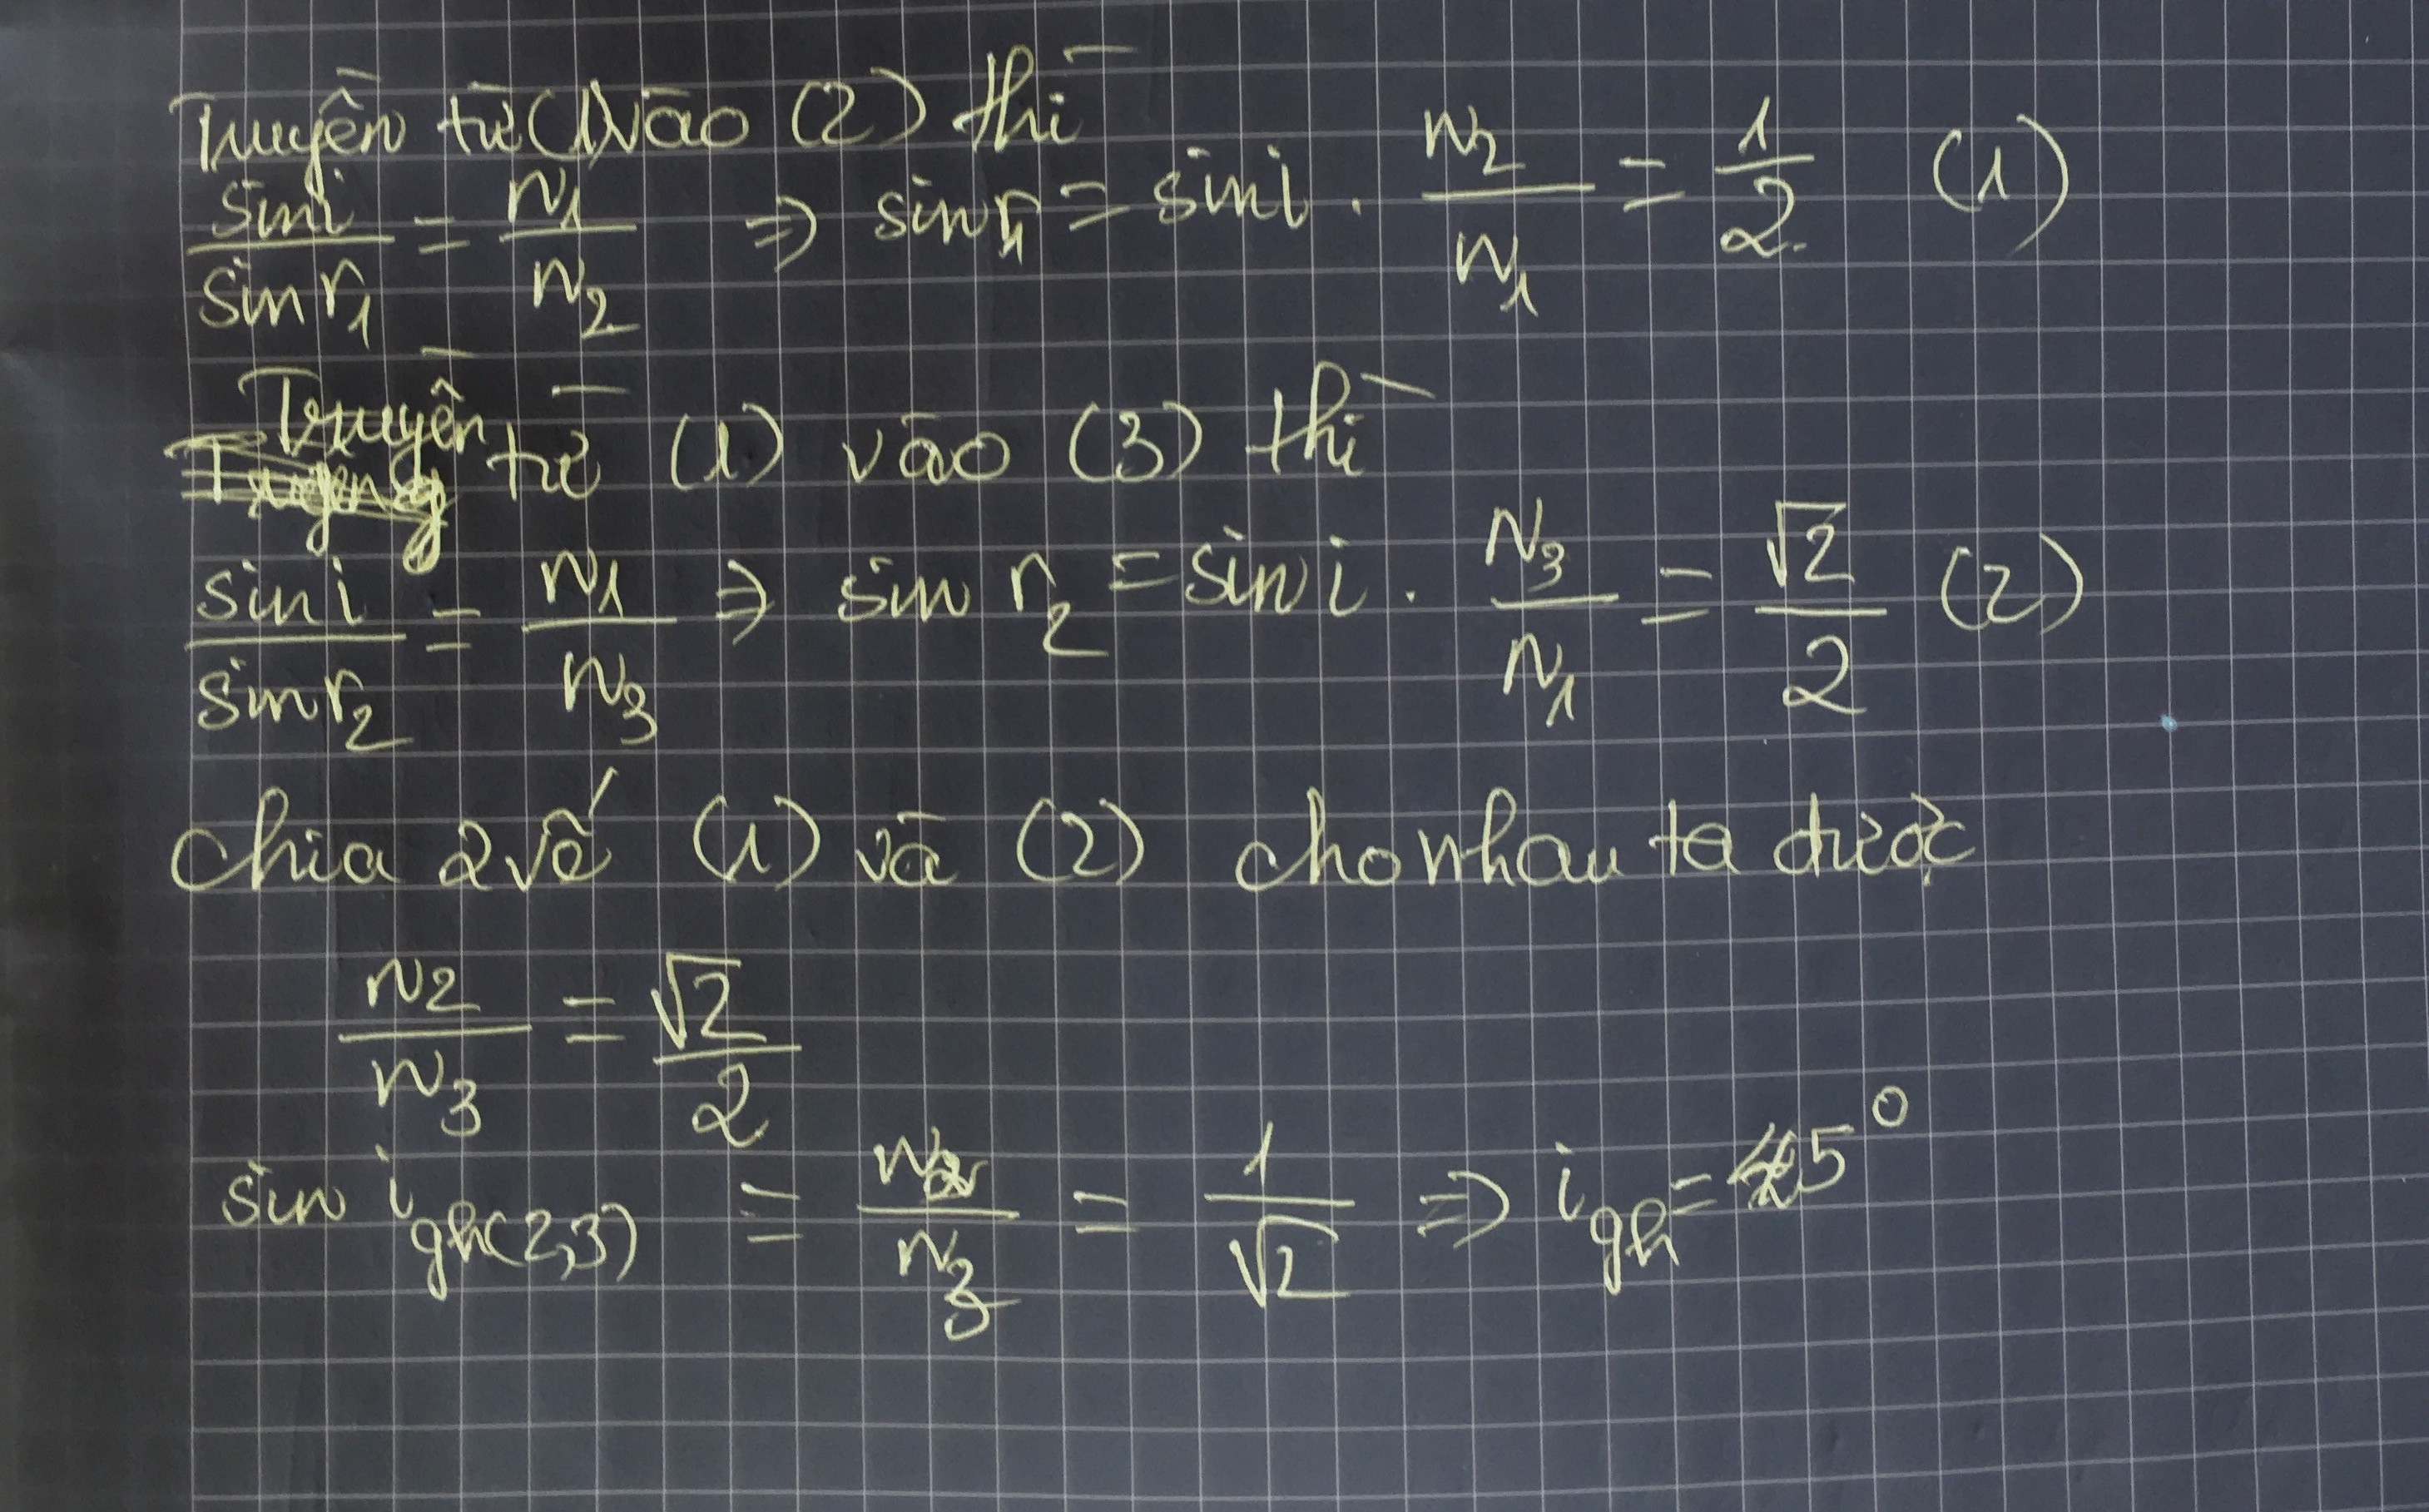 Truyền từ (1) vào (2) thì
sini/sinr₁ = n₁/n₂ ⇒ sinr₁ = sini . n₂/n₁ = 1/2 (1)
Truyền từ (1) vào (3) thì
sini/sinr₂ = n₁/n₃ ⇒ sin r₂ = sin i . n₃/n₁ = √2/2 (2)
Chia 2 vế (1) và (2) cho nhau ta được
n₂/n₃ = √2/2
sin i gh(2,3) = n₂/n₃ = 1/√2 ⇒ i gh = 45°